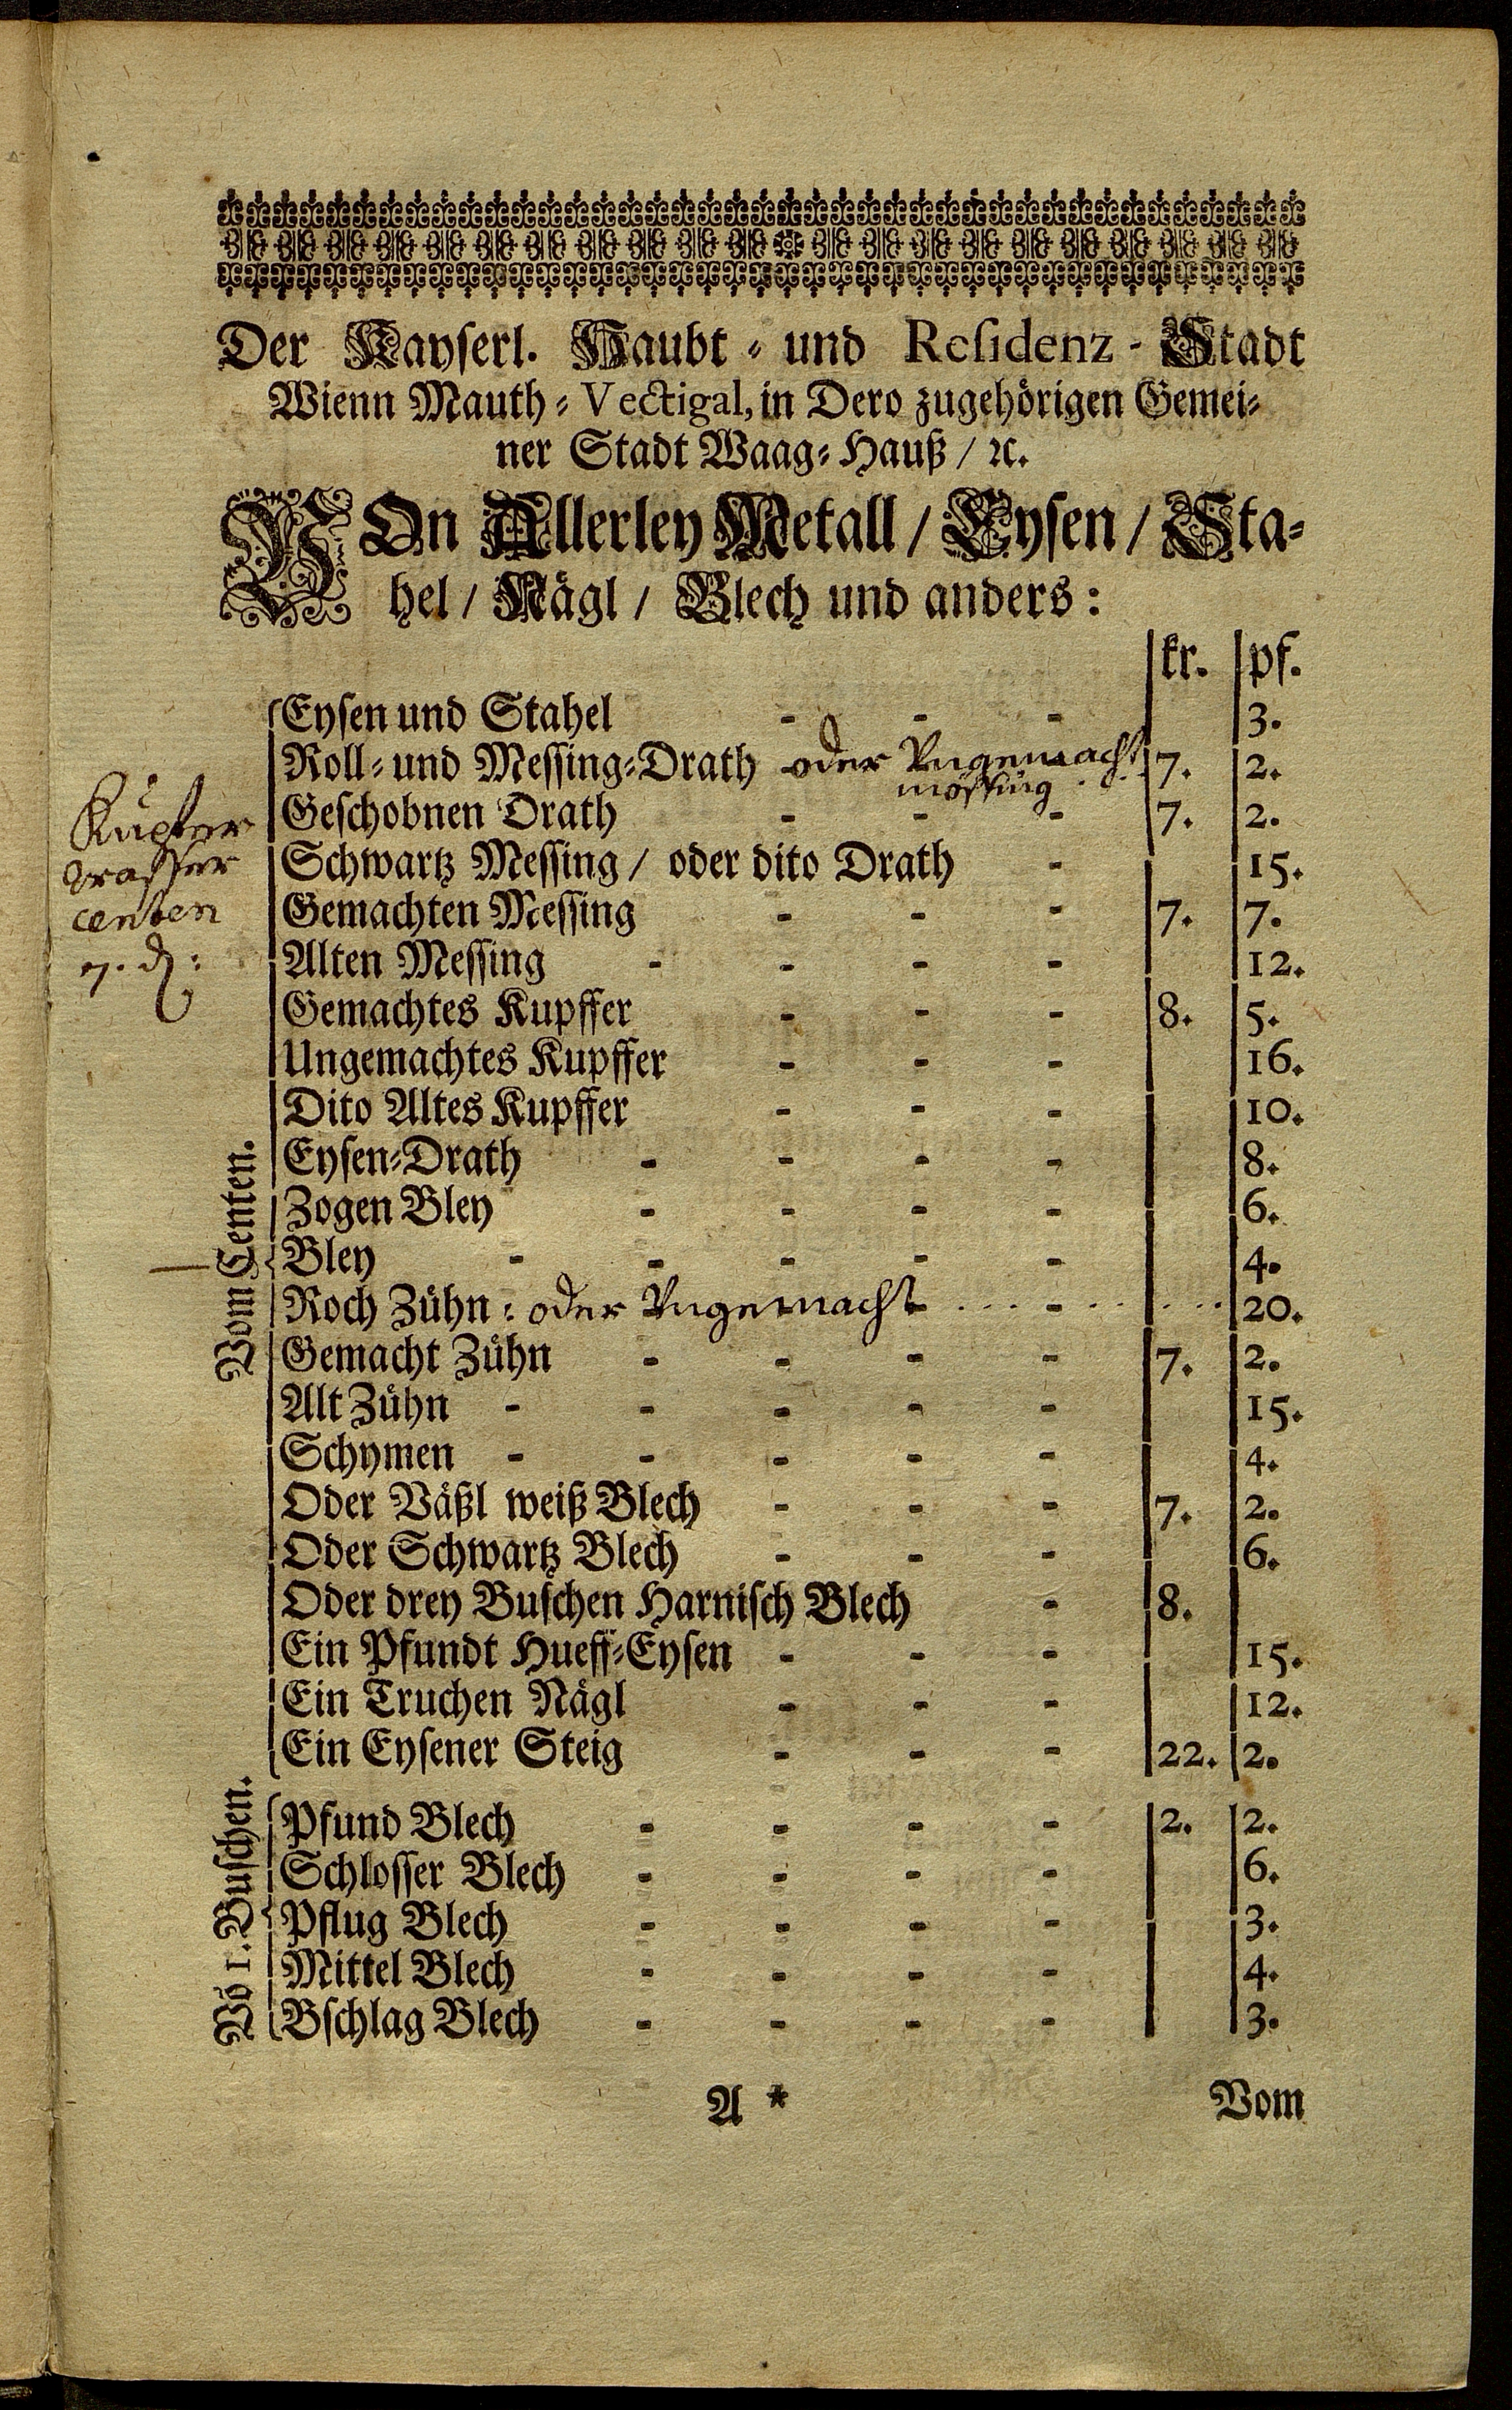 Der Kayserl. Haubt- und Residenz-Stadt
Wienn Mauth-Vectigal, in Dero zugehörigen Gemei-
ner Stadt Waag-Hauß / ꝛc.
VOn Allerley Metall / Eysen / Sta-
hel / Nägl / Blech und anders:
kr. pf.
Vom Centen.
Eysen und Stahel - - - 3.
Roll- und Messing-Drath oder Ungemacht 7. 2.
mössing
Geschobnen Drath - - - 7. 2.
Kupfer
wasser
centen
7. ₰:
Schwartz Messing / oder dito Drath - 15.
Gemachten Messing - - - 7. 7.
Alten Messing - - - - 12.
Gemachtes Kupffer - - - 8. 5.
Ungemachtes Kupffer - - - 16.
Dito Altes Kupffer - - - 10.
Eysen-Drath - - - - 8.
Zogen Bley - - - - 6.
Bley - - - - - 4.
Roch Zühn: oder Ungemacht - - 20.
Gemacht Zühn - - - - 7. 2.
Alt Zühn - - - - - 15.
Schymen - - - - - 4.
Oder Väßl weiß Blech - - - 7. 2.
Oder Schwartz Blech - - - 6.
Oder drey Buschen Harnisch Blech - 8.
Ein Pfundt Hueff-Eysen - - - 15.
Ein Truchen Nägl - - - 12.
Ein Eysener Steig - - - 22. 2.
Vō 1. Buschen.
Pfund Blech - - - - 2. 2.
Schlosser Blech - - - - 6.
Pflug Blech - - - - 3.
Mittel Blech - - - - 4.
Bschlag Blech - - - - 3.
A * Vom